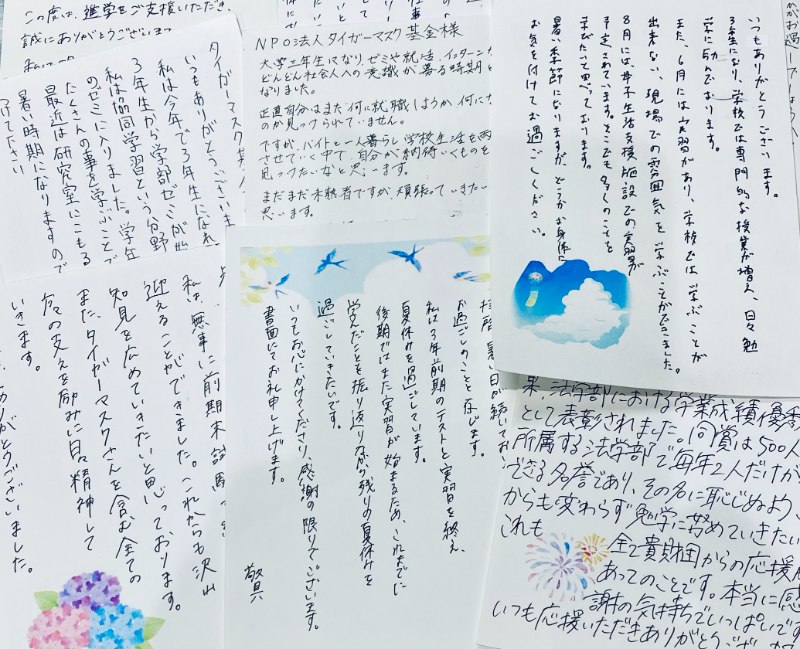 この度は、進学をご支援いただき、
誠にありがとうございます
タイガーマスク基
いつもありがとうございま
私は今年で3年生になれ
3年生から学部ゼミが出
私は協同学習という分野
のゼミに入りました。学生
たくさんの事を学ぶことで
最近は研究室にこもる
暑い時期になりますので
つけてください
NPO法人タイガーマスク基金様
大学三年生になり、ゼミや就活、インターン
どんどん社会人への意識が募る時期と
なりました。
正直自分はまだ何に就職しようか何に
のか見つけられていません。
ですが、バイトと一人暮らし学校生活を両
させていく中で、自分が納得いくものを
見つけたいなと思います。
まだまだ未熟者ですが頑張っていきたい
思います。
いつもありがとうございます。
3年生になり、学校では専門的な授業が増え、日々勉
学に励んでおります。
また、6月には実習があり、学校では学ぶことが
出来ない、現場での雰囲気を学ぶことができました。
8月には、母子生活支援施設での実習が
予定されています。そこでも多くのことを
学びたいと思っております。
暑い季節になりますが、どうかお身体に
お気を付けてお過ごしください。
私は、無事に前期末試験
迎えることができました。これからも沢山
知見を広めていきたいと思っております。
また、タイガーマスクさんを含む全ての
方々の支えを励みに日々精神して
いきます。
ありがとうございました。
暑い日が続いてお
お過ごしのことと存じます。
私は3年前期のテストと実習を終え、
夏休みを過ごしています。
後期ではまた実習が始まるため、これまでに
学んだことを振り返りながら残りの夏休みを
過ごしていきたいです。
いつもお心にかけてくださり、感謝の限りでございます。
書面にてお礼申し上げます。
敬具
果、法学部における学業成績優秀
として表彰されました。同賞は500人
所属する法学部で毎年2人だけが
できる名誉であり、その名に恥じぬよう、
からも変わらず勉学に努めていきたい
これも
全て貴財団からの応援
あってのことです。本当に感
謝の気持ちでいっぱいです
いつも応援いただきありがとうござ